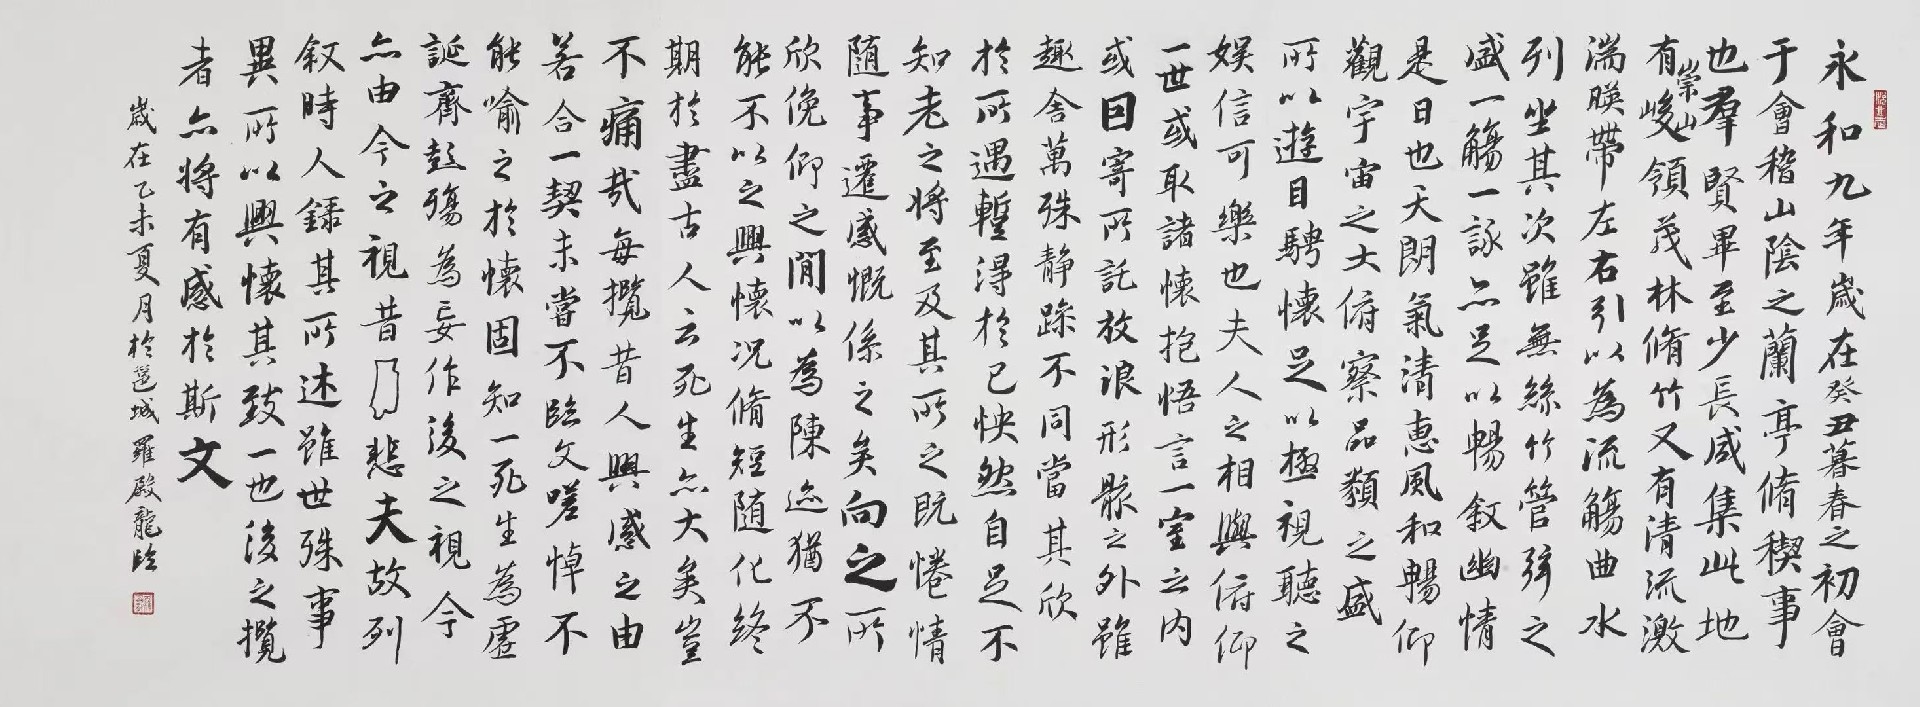 永和九年歲在癸丑暮春之初會
于會稽山陰之蘭亭脩稧事
也群賢畢至少長咸集此地
有崇山峻領茂林脩竹又有清流激
湍暎帶左右引以為流觴曲水
列坐其次雖無絲竹管弦之
盛一觴一詠亦足以暢敘幽情
是日也天朗氣清惠風和暢仰
觀宇宙之大俯察品類之盛
所以遊目騁懷足以極視聽之
娛信可樂也夫人之相與俯仰
一世或取諸懷抱悟言一室之內
或因寄所託放浪形骸之外雖
趣舍萬殊靜躁不同當其欣
於所遇蹔得於己怏然自足不
知老之將至及其所之既惓情
隨事遷感慨係之矣向之所
欣俛仰之閒以為陳迹猶不
能不以之興懷況脩短隨化終
期於盡古人云死生亦大矣豈
不痛哉每攬昔人興感之由
若合一契未嘗不臨文嗟悼不
能喻之於懷固知一死生為虛
誕齊彭殤為妄作後之視今
亦由今之視昔悲夫故列
敘時人錄其所述雖世殊事
異所以興懷其致一也後之攬
者亦將有感於斯文
歲在乙未夏月於邕城羅殿龍臨